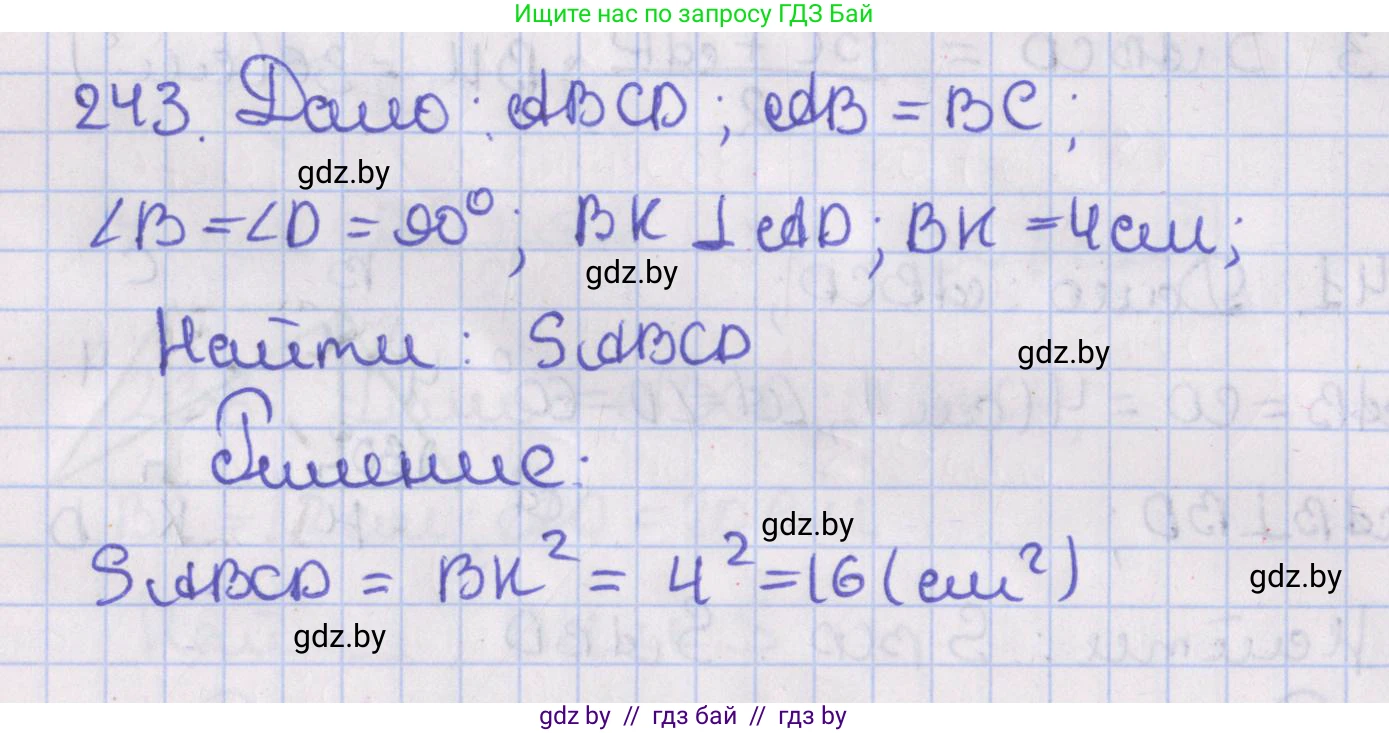 Ищите нас по запросу ГДЗ Бай
243. Дано: ABCD; AB = BC;
gdz.by
∠B = ∠D = 90°; BK ⊥ AD; BK = 4 см;
gdz.by
Найти: SABCD
gdz.by
Решение:
gdz.by
SABCD = BK² = 4² = 16 (см²)
gdz.by
gdz.by
gdz by // гдз бай // гдз by